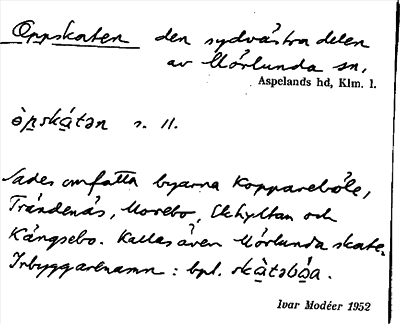 Oppskaten den sydvästra delen
av Mörlunda sn,
Aspelands hd, Klm. l.
òpskạ̀tən s. 11.
Sades omfatta byarna Koppareböle,
Tråndenäs, Morebo, Ekhyltan och
Kångsebo. Kallas även Mörlunda skate.
Inbyggarenamn: bpl. skạ̀təbọ́a.
Ivar Modéer 1952